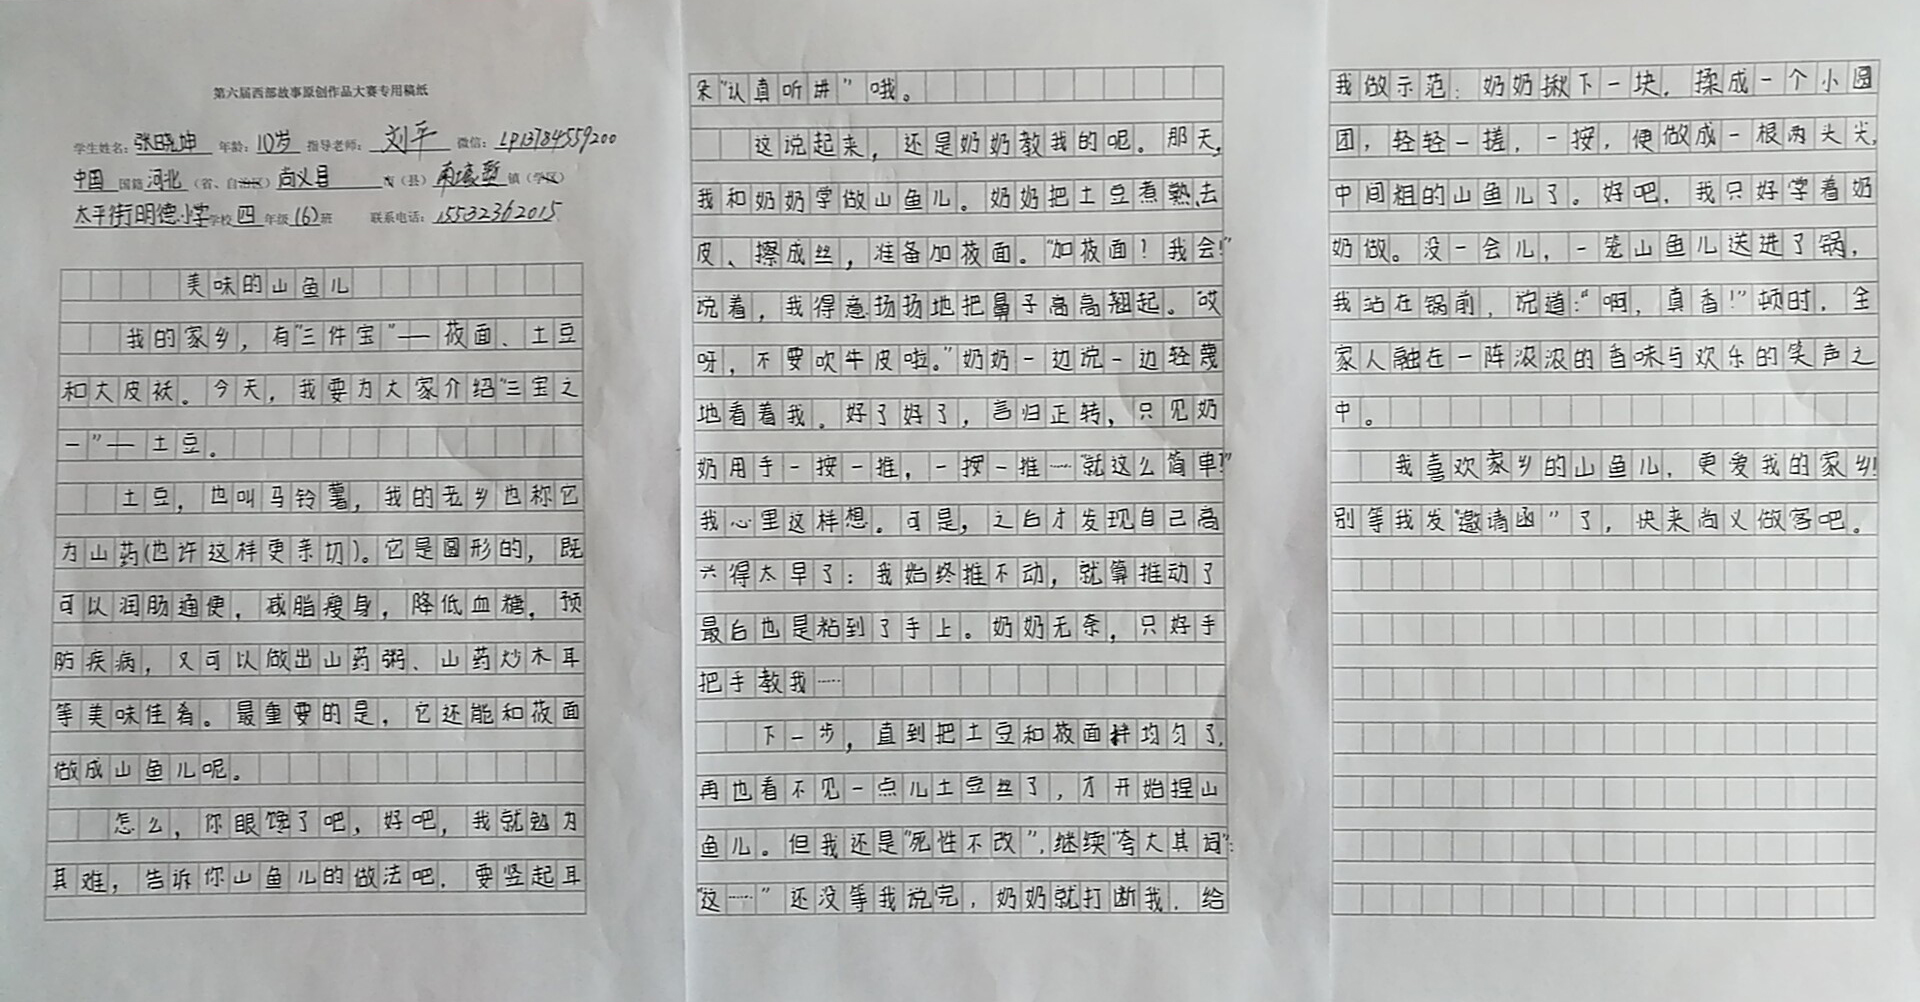 第六届西部故事原创作品大赛专用稿纸
学生姓名：张晓坤 年龄：10岁 指导老师：刘平 微信：LP13784559200
中国 国籍 河北（省、自治区）尚义县 市（县）南壕堑 镇（学区）
太平街明德小学学校 四 年级（6）班 联系电话：15532362015
美味的山鱼儿
我的家乡，有“三件宝”——莜面、土豆
和大皮袄。今天，我要为大家介绍“三宝之
一”——土豆。
土豆，也叫马铃薯，我的老乡也称它
为山药(也许这样更亲切)。它是圆形的，既
可以润肠通便，减脂瘦身，降低血糖，预
防疾病，又可以做出山药粥、山药炒木耳
等美味佳肴。最重要的是，它还能和莜面
做成山鱼儿呢。
怎么，你眼馋了吧，好吧，我就勉为
其难，告诉你山鱼儿的做法吧，要竖起耳
朵“认真听讲”哦。
这说起来，还是奶奶教我的呢。那天，
我和奶奶学做山鱼儿。奶奶把土豆煮熟、去
皮、擦成丝，准备加莜面。“加莜面！我会！”
说着，我得意扬扬地把鼻子高高翘起。“哎
呀，不要吹牛皮啦。”奶奶一边说一边轻蔑
地看着我。好了好了，言归正转，只见奶
奶用手一按一推，一按一推……“就这么简单！”
我心里这样想。可是，之后才发现自己高
兴得太早了：我始终推不动，就算推动了
最后也是粘到了手上。奶奶无奈，只好手
把手教我……
下一步，直到把土豆和莜面拌均匀了，
再也看不见一点儿土豆丝了，才开始捏山
鱼儿。但我还是“死性不改”，继续“夸大其词”：
“这……”还没等我说完，奶奶就打断我，给
我做示范：奶奶揪下一块，揉成一个小圆
团，轻轻一搓，一按，便做成一根两头尖，
中间粗的山鱼儿了。好吧，我只好学着奶
奶做。没一会儿，一笼山鱼儿送进了锅，
我站在锅前，说道：“啊，真香！”顿时，全
家人融在一阵浓浓的香味与欢乐的笑声之
中。
我喜欢家乡的山鱼儿，更爱我的家乡！
别等我发“邀请函”了，快来尚义做客吧。